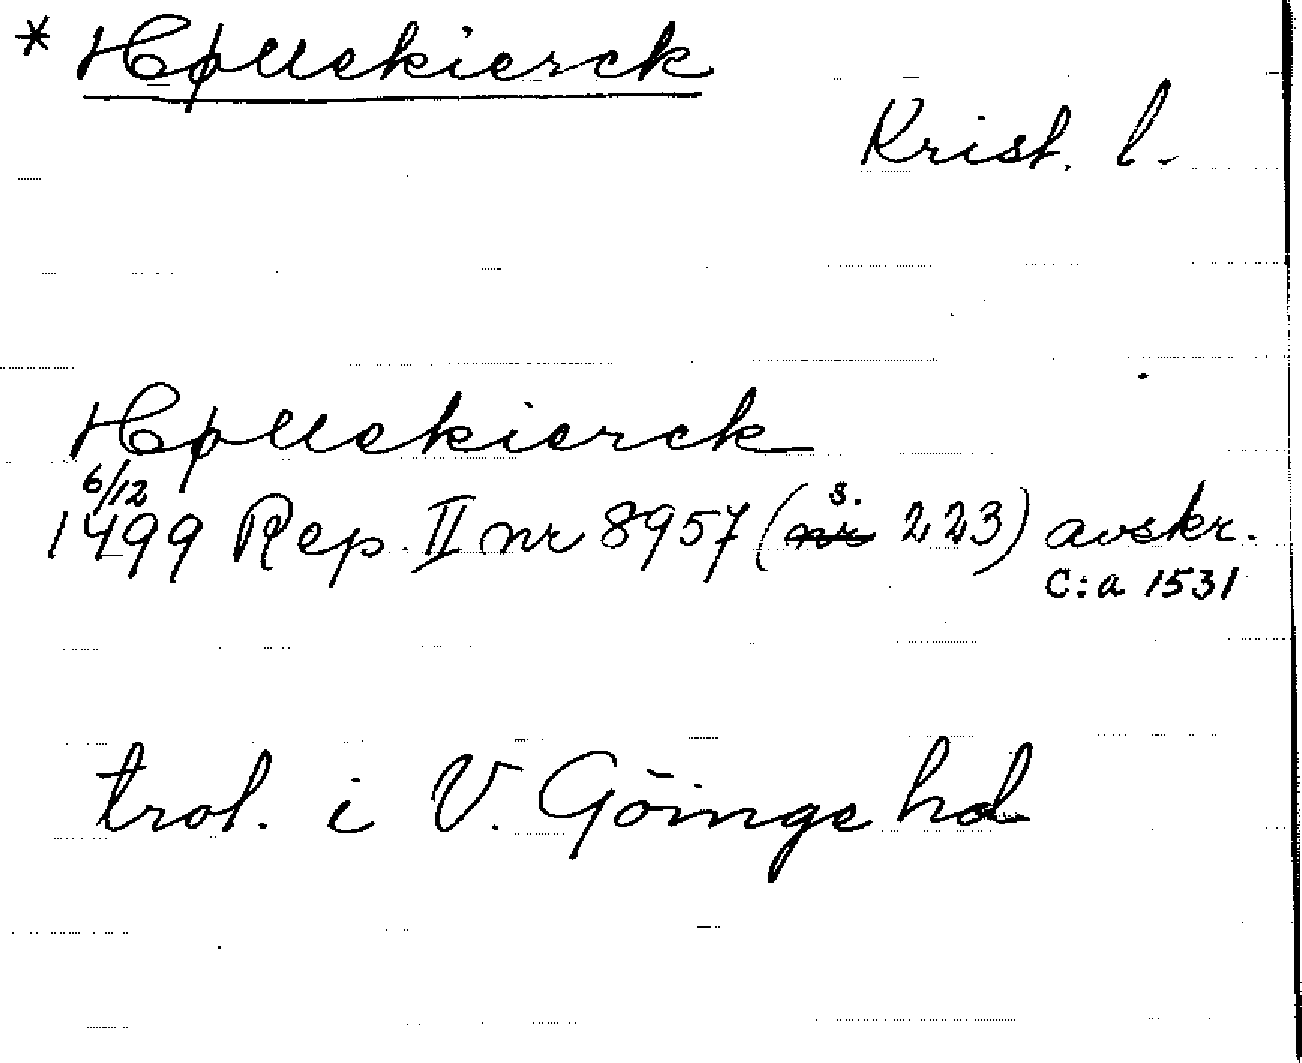 * Høllekierck
Krist. l.
Høllekierck
6/12
1499 Rep. II nr 8957 (nr s. 223) avskr.
C:a 1531
trol. i V. Göinge hd